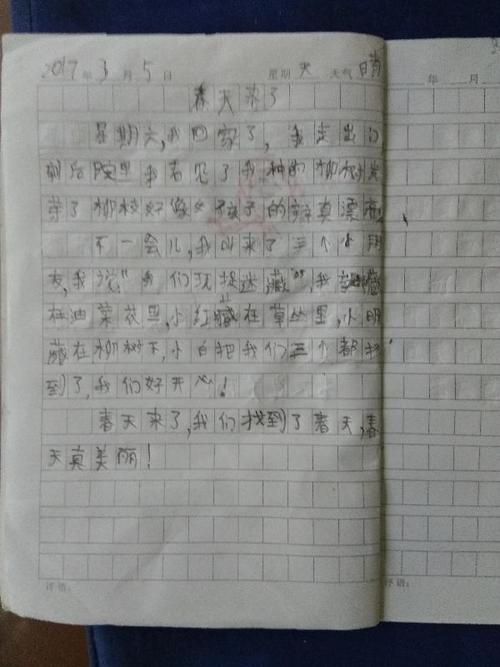 2017年3月5日 星期天 天气晴
年 月
春天来了
星期六,我回家了,我走出门
到后院里我看见了我种的柳树发
芽了柳枝好像女孩子的辫真漂亮。
不一会儿,我叫来了三个小朋
友,我说:“我们玩捉迷藏”。我躲藏
在油菜花里,小红藏在草丛里,小明
藏在柳树下,小白把我们三个都找
到了,我们好开心!
春天来了,我们找到了春天,春
天真美丽!
评语: 评语: